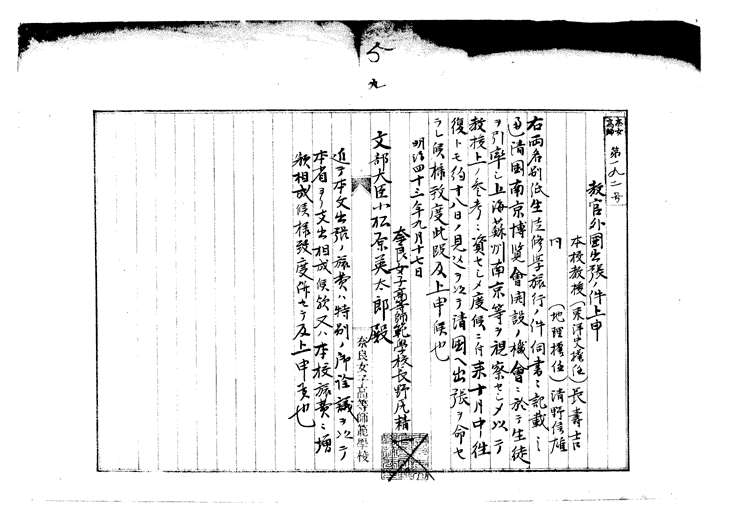 五
九
奈女高師
第一九二号
教官外國出張ノ件上申
本校教授(東洋史擔任)長壽吉
仝(地理擔任)清野信雄
右両名別紙生徒修學旅行ノ件伺書ニ記載ノ
通清国南京博覧會開設ノ機會ニ於テ生徒
ヲ引率シ上海蘇州南京等ヲ視察セシメ以テ
教授上ノ参考ニ資セシメ度候ニ付来十月中往
復トモ約十八日ノ見込ヲ以テ清国ヘ出張ヲ命セ
ラレ候様致度此段及上申候也
明治四十三年九月十七日
奈良女子高等師範學校長野尻精一
文部大臣小松原英太郎殿
奈良女子高等師範學校
追テ本文出張ノ旅費ハ特別ノ御詮議ヲ以テ
本省ヨリ支出相成候欤又ハ本校旅費ニ増
額相成候様致度併セテ及上申候也